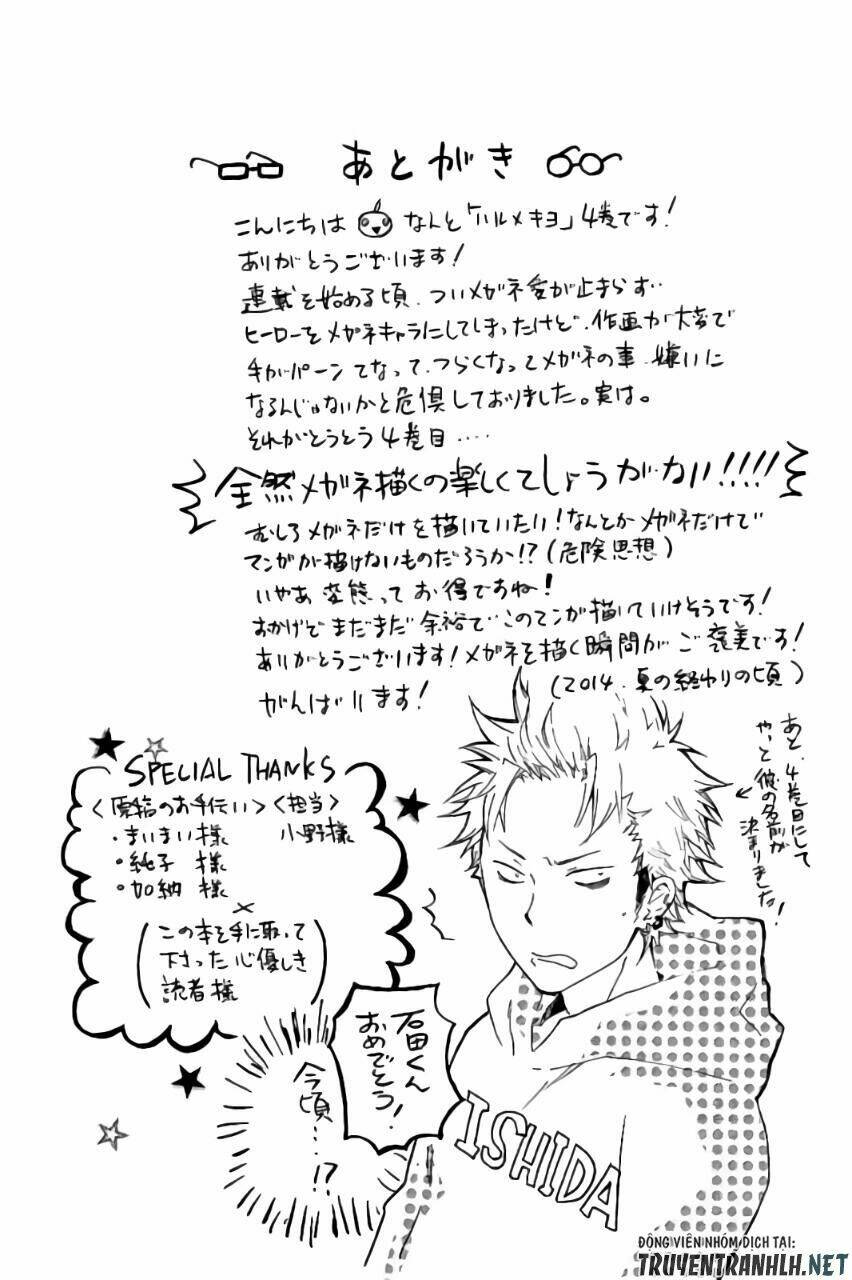 あとがき
こんにちは なんと「ハルメキヨ」4巻です!
ありがとうございます!
連載を始める頃、ついメガネ愛が止まらず…
ヒーローをメガネキャラにしてしまったけど、作画が大変で
手がパーンてなって、つらくなってメガネの事、嫌いに
なるんじゃないかと危惧しておりました。実は。
それがとうとう4巻目....
全然メガネ描くの楽しくてしょうがない!!!!
むしろメガネだけを描いていたい!なんとかメガネだけで
マンガが描けないものだろうか!?(危険思想)
いやあ 変態って お得ですね!
おかげで まだまだ 余裕で このマンガ描いていけそうです!
ありがとうございます!メガネを描く瞬間が ご褒美です!
がんばります!
(2014.夏の終わりの頃)
あと、4巻目にして
やっと彼の名前が
決まりました!
SPECIAL THANKS
<原稿のお手伝い> <担当>
・まいまい様 小野様
・純子 様
・加納 様
(この本を手に取って
下さった心優しき
読者様)
石田くん
おめでとう!
今頃…!?
ISHIDA
ĐỘNG VIÊN NHÓM DỊCH TẠI:
TRUYENTRANHLH.NET